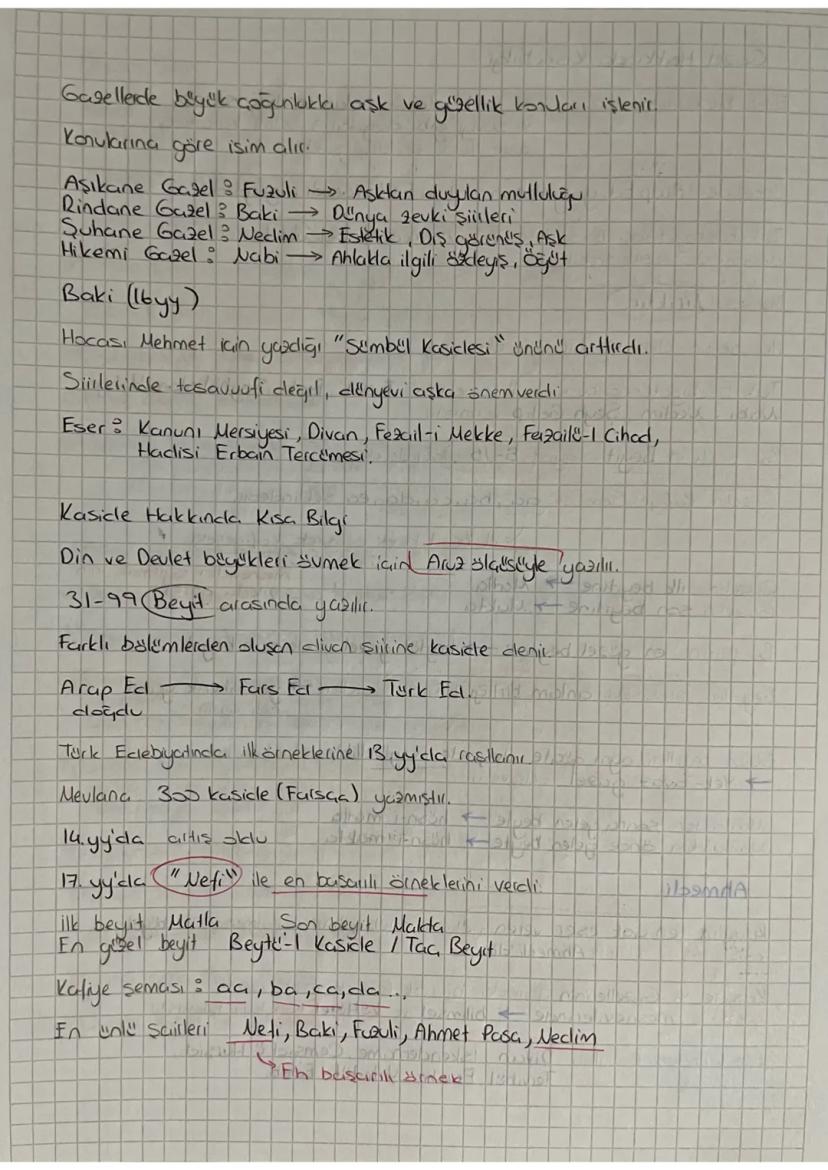 Gazellerde büyük çoğunlukla aşk ve güzellik konuları işlenir.
Konularına göre isim alır.
Aşıkane Gazel: Fuzuli → Aşktan duyulan mutluluğu
Rindane Gazel: Baki → Dünya zevki şiirleri
Şuhane Gazel: Nedim → Estetik, Dış görünüş, Aşk
Hikemi Gazel: Nabi → Ahlakla ilgili özdeyiş, Öğüt
Baki (16yy)
Hocası Mehmet için yazdığı "Sümbül Kasidesi" ününü arttırdı.
Şiirlerinde tasavvufi değil, dünyevi aşka önem verdi
Eser: Kanuni Mersiyesi, Divan, Fezail-i Mekke, Fezailü-l Cihad,
Hadisi Erbain Tercümesi.
Kaside Hakkında Kısa Bilgi
Din ve Devlet büyükleri övmek için Aruz ölçüsüyle yazılır.
31-99 Beyit arasında yazılır.
Farklı bölümlerden oluşan divan şiirine kaside denir.
Arap Ed → Fars Ed → Türk Ed.
doğdu
Türk Edebiyatında ilk örneklerine 13.yy'da rastlanır.
Mevlana 300 kaside (Farsça) yazmıştır.
14.yy'da artış oldu
17.yy'da "Nefi" ile en başarılı örneklerini verdi.
ilk beyit Matla Son beyit Makta
En güzel beyit Beytü-l Kaside / Taç Beyit
Kafiye şeması: aa, ba, ca, da...
En ünlü şairleri Nefi, Baki, Fuzuli, Ahmet Paşa, Nedim
↳ En başarılı örnek